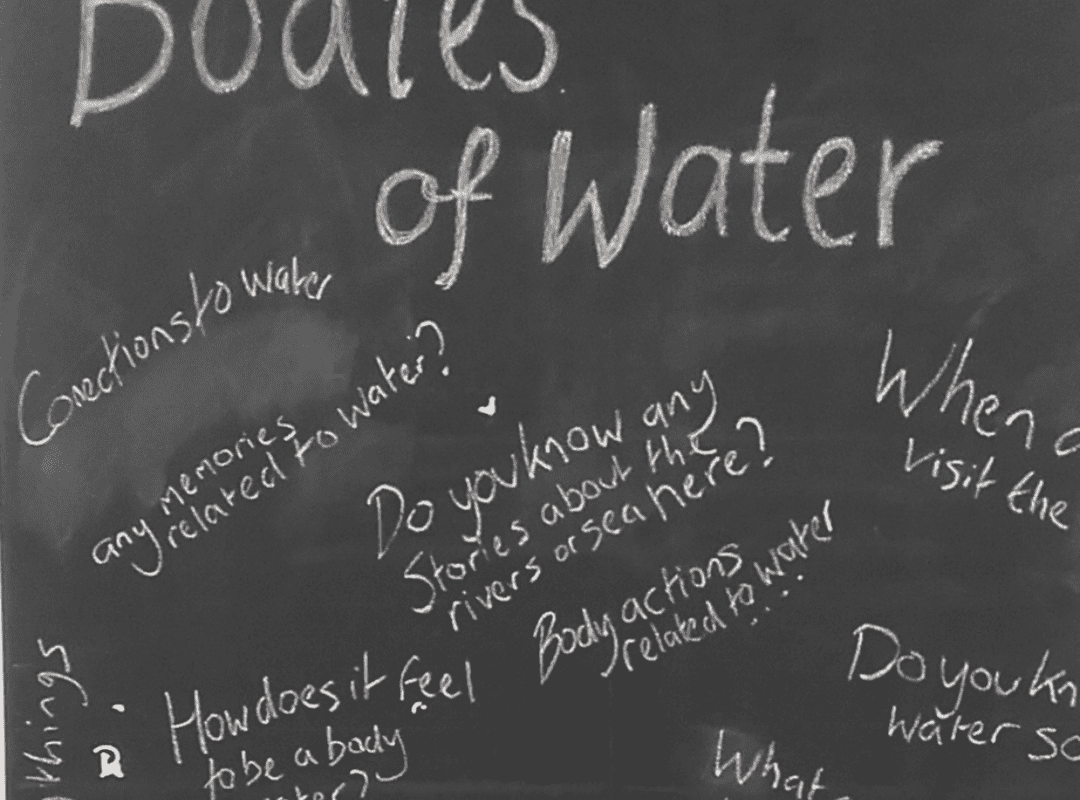 Bodies
of Water
Conections to water
any memories
related to water?
Do you know any
Stories about the
rivers or sea here?
When
visit the
Body actions
related to water...
things
How does it feel
to be a body
Do you kn
water so
What